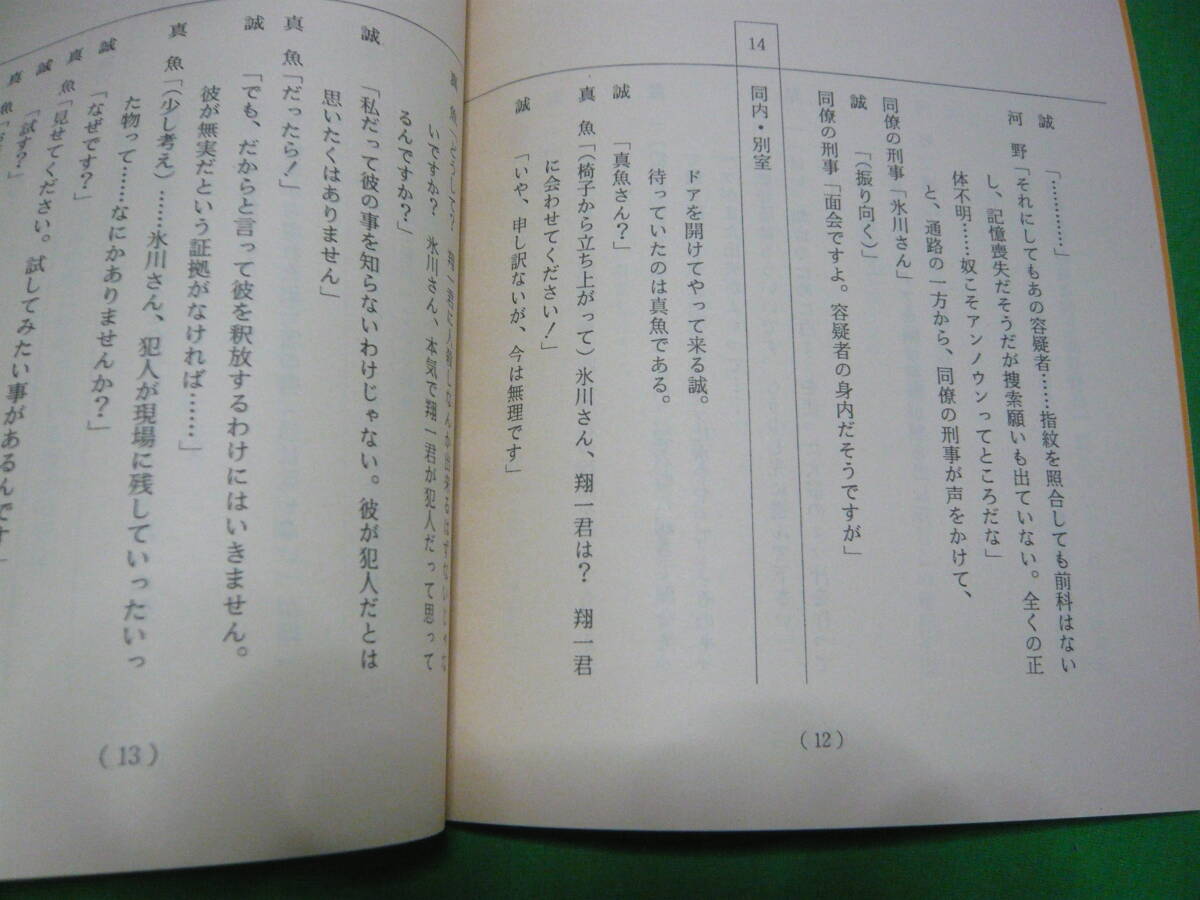 誠　「…………」
河　野「それにしてもあの容疑者……指紋を照合しても前科はない
し、記憶喪失だそうだが捜索願いも出ていない。全くの正
体不明……奴こそアンノウンってところだな」
と、通路の一方から、同僚の刑事が声をかけて、
同僚の刑事「氷川さん」
誠　「（振り向く）」
同僚の刑事「面会ですよ。容疑者の身内だそうですが」
14
同内・別室
ドアを開けてやって来る誠。
待っていたのは真魚である。
誠　「真魚さん？」
真　魚「（椅子から立ち上がって）氷川さん、翔一君は？　翔一君
に会わせてください！」
誠　「いや、申し訳ないが、今は無理です」
（12）
真　魚「どうして？　翔一君に人殺しなんか出来るはずないじゃな
いですか？　氷川さん、本気で翔一君が犯人だって思って
るんですか？」
誠　「私だって彼の事を知らないわけじゃない。彼が犯人だとは
思いたくはありません」
真　魚「だったら！」
誠　「でも、だからと言って彼を釈放するわけにはいきません。
彼が無実だという証拠がなければ……」
真　魚「（少し考え）……氷川さん、犯人が現場に残していったいっ
た物って……なにかありませんか？」
誠　「なぜです？」
真　魚「見せてください。試してみたい事があるんです」
誠　「試す？」
真　魚「
（13）